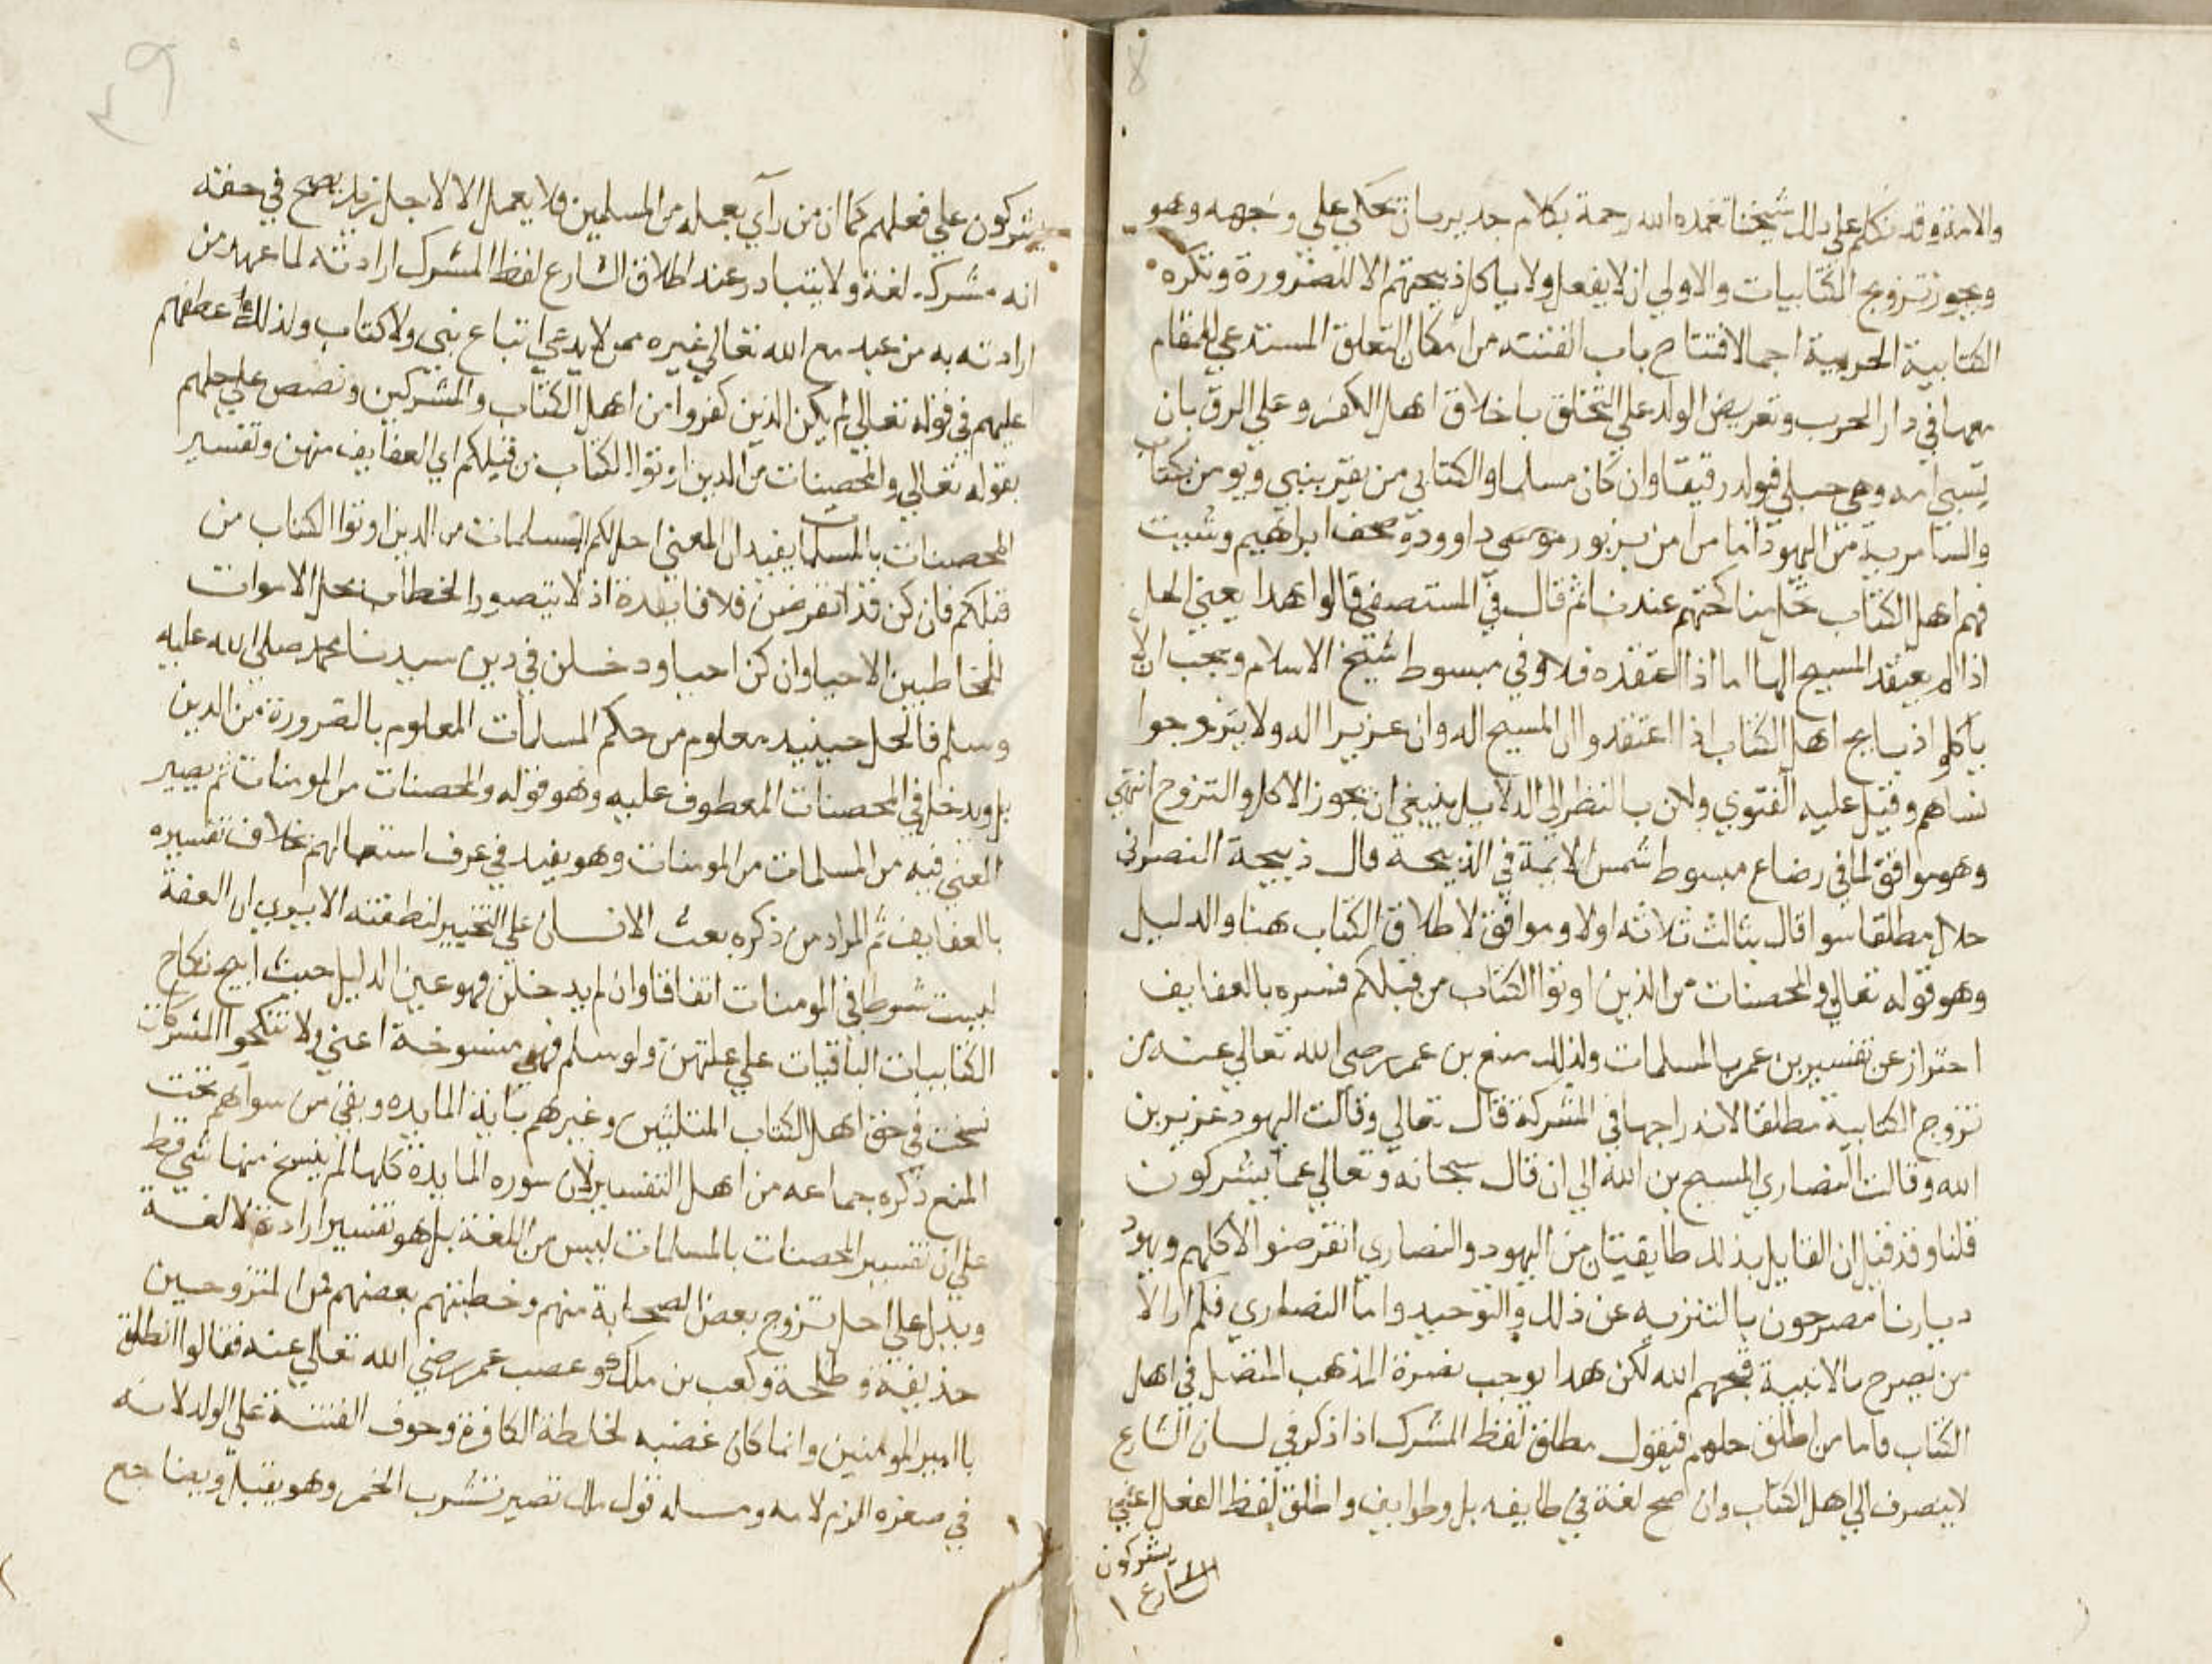 والامة وقد تكلم على ذلك شيخنا تغمده الله رحمة بكلام جدير بان تحكي على وجهه وهو
ويجوز تزوج الكتابيات والاولي ان لا يفعل ولا ياكل ذبيحتهم الا للضرورة وتكره
الكتابية الحربية اجمالافتتاح باب الفتنه من امكان التعلق المستدعي للمقام
معها في دار الحرب وتعريض الولد علي التخلق باخلاق اهل الكفر وعلي الرق بان
تسبي امه وهي حبلي فيولد رقيقا وان كان مسلما والكتابي من يقر بنبي ويومن بكتاب
والسامرية من اليهود اما من امن بزبور داوود وصحف ابراهيم وشيت
فهم اهل الكتاب تحل مناكحتهم عندنا ثم قال في المستصفي قالوا هذا يعني الحل
اذا لم يعتقد المسيح الها اما اذا اعتقده فلا وفي مبسوط شيخ الاسلام ويجب ان لا
ياكلوا ذبايح اهل الكتاب اذا اعتقدوا ان المسيح اله وان عزيرا اله ولا يتزوجوا
نساهم وقيل عليه الفتوي ولان بالنظر الي الدلايل ينبغي ان يجوز الاكل والتزوج انتهي
وهو موافق لما في رضاع مبسوط شمس الايمة في الذبيحة قال ذبيحة النصراني
حلال مطلقا سوا قال بثالث ثلاثه اولا وموافق لاطلاق الكتاب هنا والدليل
وهو قوله تعالي والمحصنات من الذين اوتوا الكتاب من قبلكم فسره بالعفايف
احتراز عن تفسير بن عمر بالمسلمات ولذلك منع بن عمر رضي الله تعالي عنه من
تزوج الكتابية مطلقا لاندراجها في المشركة قال تعالي وقالت اليهود عزير بن
الله وقالت النصاري المسيح بن الله الي ان قال سبحانه وتعالي عما يشركون
قلنا وقد قيل ان القايل بذلك طايفتان من اليهود والنصاري انقرضوا لا كلهم ويهود
ديارنا مصرحون بالتنزيه عن ذلك والتوحيد واما النصاري فلم ار الا
من يصرح بالابنية قبحهم الله لكن هذا يوجب نصرة المذهب المفصل في اهل
الكتاب فاما من اطلق حلهم فيقول مطلق لفظ المشرك اذا ذكر في لسان الشارع
لا ينصرف الي اهل الكتاب وان صح لغة في طايفه بل وطوايف واطلق لفظ الفعل اعني
يشركون
الشارع ١
يشركون علي فعلهم كما ان من رآي بعمله من المسلمين فلا يعمل الا لاجل زيد يصح في حقه
انه مشرك لغة ولا يتبادر عند اطلاق الشارع لفظ المشرك ارادته لما عهد من
ارادته به من عبد مع الله تعالي غيره ممن لا يدعي اتباع نبي ولا كتاب ولذلك عطفهم
عليهم في قوله تعالي لم يكن الذين كفروا من اهل الكتاب والمشركين ونصص علي حلهم
بقوله تعالي والمحصنات من الذين اوتوا الكتاب من قبلكم اي العفايف منهن وتفسير
المحصنات بالمسلمات يفيد ان المعني احل لكم المسلمات من الذين اوتوا الكتاب من
قبلكم فان كن قد انقرضن فلا فايدة اذ لا يتصور الخطاب بحل الاموات
للمخاطبين الاحيا وان كن احيا ودخلن في دين سيدنا محمد صلي الله عليه
وسلم فالحل حينيد معلوم من حكم المسلمات المعلوم بالضرورة من الدين
بل ويدخل في المحصنات المعطوف عليه وهو قوله والمحصنات من المومنات ثم يصير
المعني فيه من المسلمات من المومنات وهو بعيد في عرف استعمالهم بخلاف تفسيره
بالعفايف ثم المراد من ذكره بعث الانسان علي التخيير لنطفته الا يري ان العفة
ليست شرطا في المومنات اتفاقا وان لم يدخلن فهو عين الدليل حيث ابيح نكاح
الكتابيات الباقيات علي ملتهن ولو سلم فهي منسوخة اعني ولا تنكحوا المشركات
نسخت في حق اهل الكتاب المثلثين وغيرهم باية المايده وبقي من سواهم تحت
المنع ذكره جماعه من اهل التفسير لان سوره المايدة كلها لم ينسخ منها شي قط
علي ان تفسير المحصنات بالمسلمات ليس من اللغة بل هو تفسير ارادة لا لغة
ويدل علي الحل تزوج بعض الصحابة منهم وخطبتهم بعضهم فمن المتزوجين
حذيفة وطلحة وكعب بن ملك وغضب عمر رضي الله تعالي عنه فقالوا انطلق
يا امير المومنين وانما كان غضبه لخلطة الكافرة وخوف الفتنة علي الولد لانه
في صغره الزم لامه ومسله قول ملك تصير تشرب الخمر وهو يقبل ويضاجع